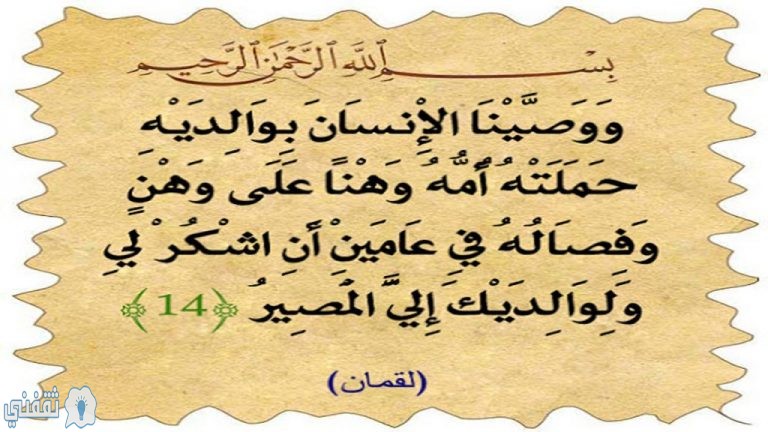 بِسْمِ ٱللَّهِ ٱلرَّحْمَٰنِ ٱلرَّحِيمِ
وَوَصَّيْنَا الإِْنسَانَ بِوَالِدَيْهِ
حَمَلَتْهُ أُمُّهُ وَهْنًا عَلَى وَهْنٍ
وَفِصَالُهُ فِي عَامَيْنِ أَنِ اشْكُرْ لِي
وَلِوَالِدَيْكَ إِلَيَّ الْمَصِيرُ ﴿14﴾
(لقمان)
ثقفني